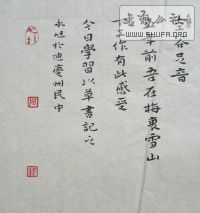 空谷足音
年前吾在梅裏雪山
下工作有此感受
今日學習以草書記之
於迪慶州民中
www.SHUFA.ORG